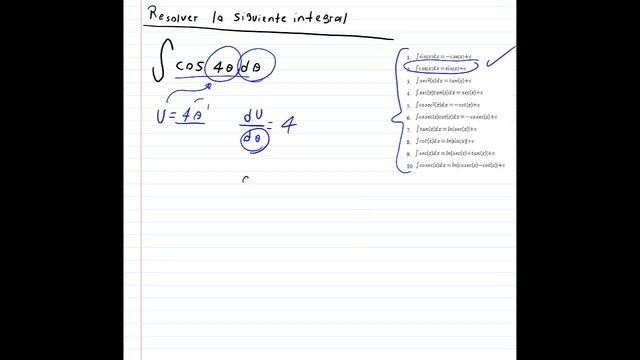 Resolver la siguiente integral
∫ cos 4θ dθ
U = 4θ
dU/dθ = 4
1. ∫sin(x)dx = -cos(x)+c
2. ∫cos(x)dx = sin(x)+c
3. ∫sec²(x)dx = tan(x)+c
4. ∫sec(x)tan(x)dx = sec(x)+c
5. ∫cosec²(x)dx = -cot(x)+c
6. ∫cosec(x)cot(x)dx = -cosec(x)+c
7. ∫tan(x)dx = ln|sec(x)|+c
8. ∫cot(x)dx = ln|sin(x)|+c
9. ∫sec(x)dx = ln|sec(x)+tan(x)|+c
10. ∫cosec(x)dx = ln|cosec(x)-cot(x)|+c